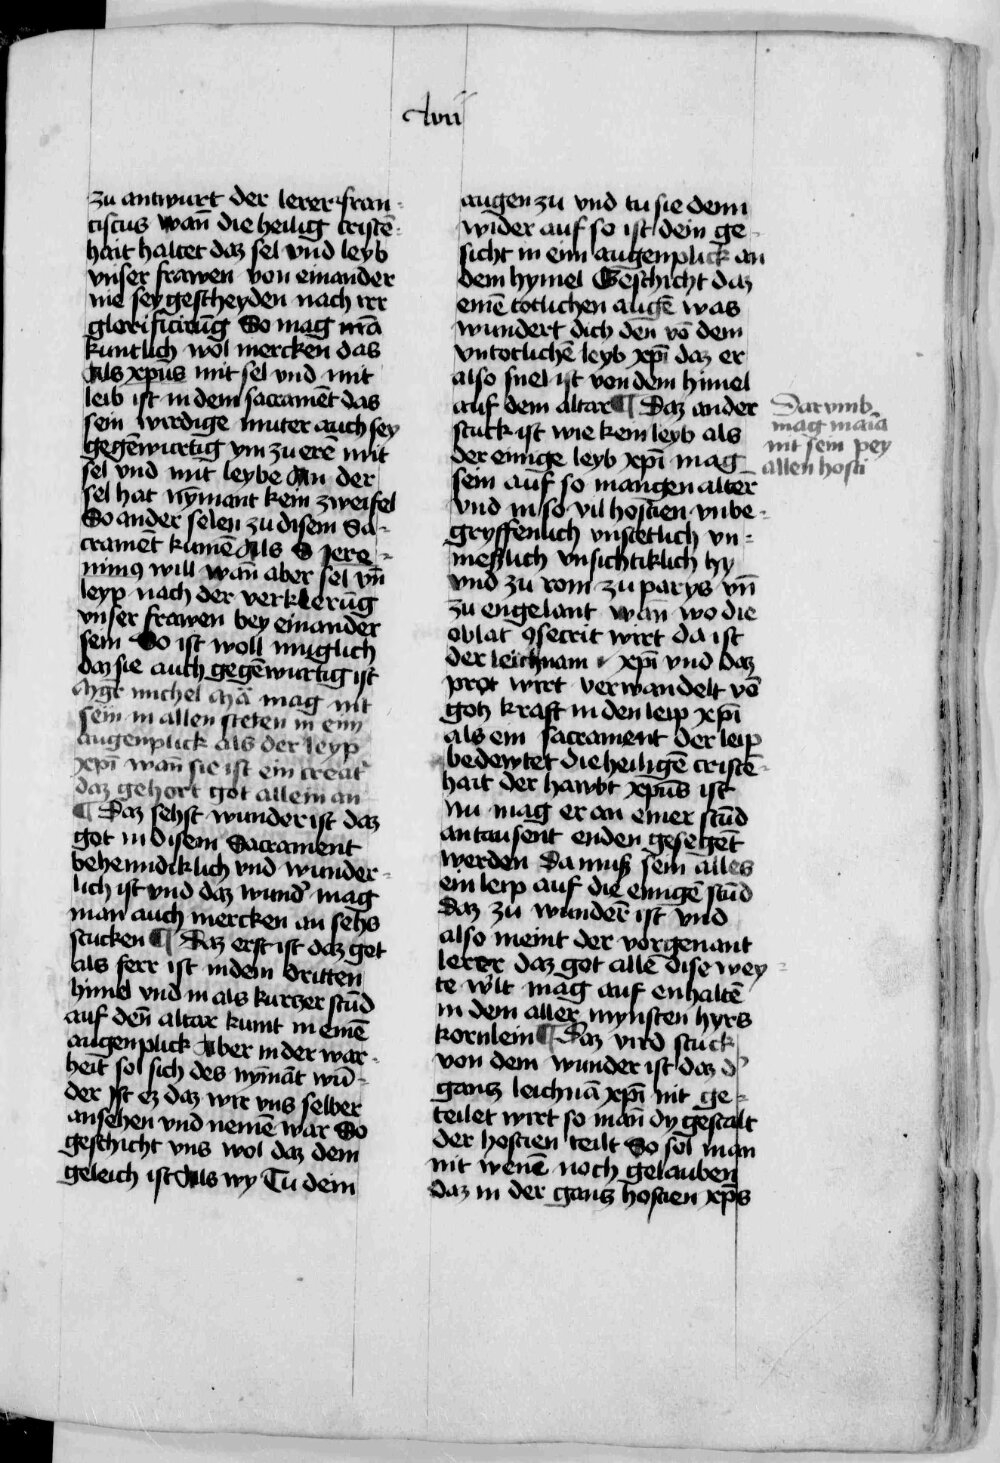 clvii
zu antwurt der lerer fran-
ciscus wan̄ die heilig cristē-
hait haltet daz sel vnd leyb
vnser frawen von einander
nie sey gescheyden nach irer
glorificirūg So mag mā
kuntlich wol mercken das
Als xp̄us mit sel vnd mit
leib ist in dem sacramēt das
sein wirdige muter auch sey
gegēwurtig ym zu erē mit
sel vnd mit leybe An der
sel hat nȳmant kein zweifel
So ander selen zu disem Sa-
cramēt kumē Als S Jero-
nim9 will wan̄ aber sel vn̄
leyp nach der verklerūg
vnser frawen bey einander
sein So ist woll muglich
daz sie auch gegēwurtig ist
Mgr̄ michel Mā mag nit
sein in allen steten in eim
augenplick als der leyp
xp̄i wan̄ sie ist ein creat᷑
daz gehort got allein an
¶ Daz sehst wunder ist daz
got in disem Sacrament
behenndiklich vnd wunder-
lich ist vnd daz wund᷑ mag
man auch mercken an sehs
stucken ¶ Daz erst ist daz got
als ferr ist in dem dritten
himel vnd in als kurtzer stūd
auf den̄ altar kumt in einē
augenplick Aber in der war-
heit sol sich des nȳmāt wū-
der Ist ez daz wir vns selber
ansehen vnd nemē war So
geschicht vns wol daz dem
geleich ist Als wy Tu dein
augen zu vnd tu sie denn
wider auf so ist dein ge-
sicht in eim augenplick an
dem hymel Geschicht daz
einē totlichen augē was
wundert dich dēn vō dem
vntotlichē leyb xp̄i daz er
also snel ist von dem himel
auf dem altar ¶ Daz ander
stuck ist wie kein leyb als
der einige leyb xp̄i mag
sein auf so mangen alter
vnd in so vil hostien vnbe-
gryffenlich vnstetlich vn-
meßlich vnsichtiklich hy
vnd zu rom zu parys vn̄
zu engelant wan̄ wo die
oblat 9secrirt wirt da ist
der leichnam xp̄i vnd daz
prot wirt verwandelt vō
gotz kraft in den leip xp̄i
als ein sacrament der leip
bedewtet die heiligē cristē-
hait der hawbt xp̄us ist
Nu mag er an einer stūd
an tausent enden gesegēt
werden Da muß sein alles
ein leip auf die einigē stūd
Daz zu wunderē ist vnd
also meint der vorgenant
lerer daz got allē dise wey-
te w᷑lt mag auf enhaltē
in dem aller mynsten hyrs
kornlein ¶ Daz vird stuck
von dem wunder ist daz d᷑
gantz leichnā xp̄i nit ge-
teilet wirt so man̄ dy gestalt
der hostien teilt So sol man
nit wenē noch gelauben
daz in der gantz hostien xp̄s
Darumb
mag maiā
nit sein pey
allen hosti